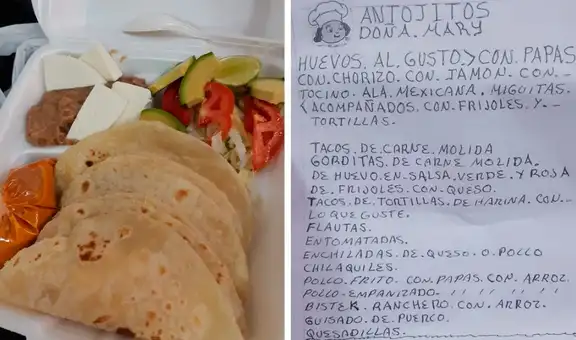 ANTOJITOS
DOÑA. MARY
HUEVOS. AL. GUSTO > CON. PAPAS
CON. CHORIZO. CON. JAMON. CON. -
TOCINO. ALA. MEXICANA. MIGUITAS.
< ACOMPAÑADOS. CON. FRIJOLES. Y. -
TORTILLAS.
TACOS. DE. CARNE. MOLIDA
GORDITAS. DE CARNE MOLIDA.
DE HUEVO. EN. SALSA. VERDE. Y ROJA
DE. FRIJOLES. CON. QUESO.
TACOS. DE. TORTILLAS. DE HARINA. CON. -
LO QUE GUSTE.
FLAUTAS.
ENTOMATADAS.
ENCHILADAS. DE. QUESO. O POLLO
CHILAQUILES.
POLLO. FRITO. CON. PAPAS. CON. ARROZ.
POLLO. EMPANIZADO. " " " " "
BISTEK. RANCHERO. CON. ARROZ.
GUISADO. DE. PUERCO.
QUESADILLAS.